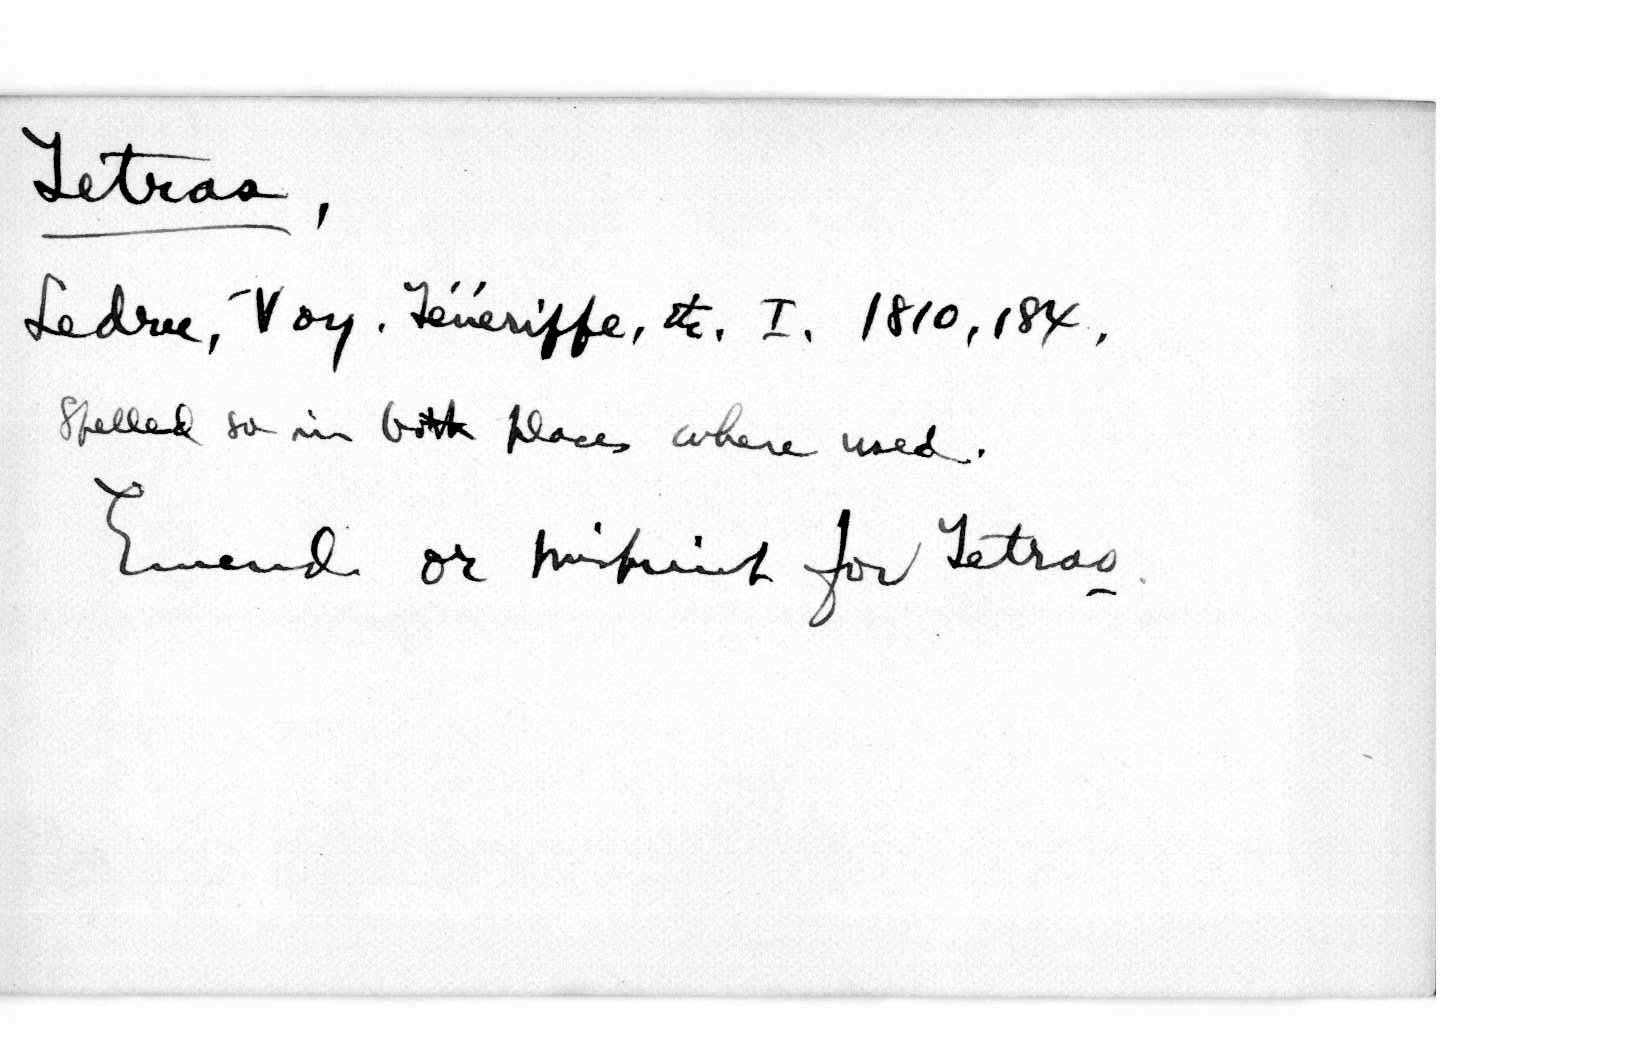 Tetras,
Ledru, Voy. Ténériffe, etc. I. 1810, 184.,
Spelled so in both places where used.
Emend. or misprint for Tetrao.